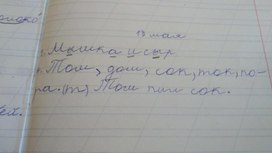 13 мая
Мышка и сыр
Том, дом, сок, ток, по-
ра. (т) Том пил сок.